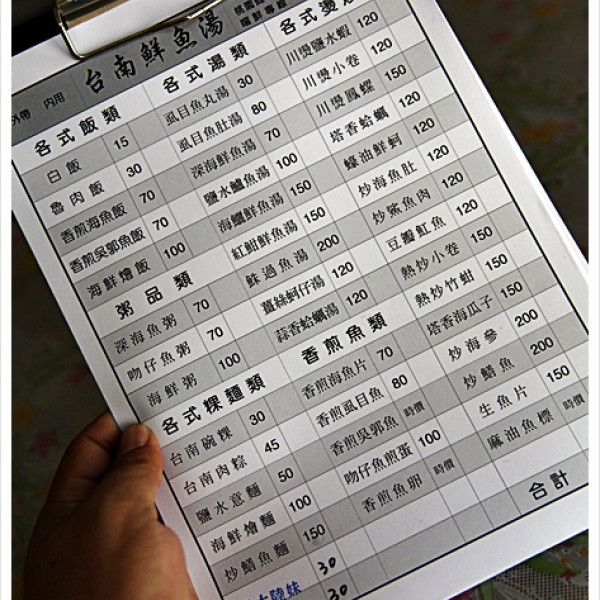 台南鮮魚湯
外帶 內用
各式飯類
白飯 15
魯肉飯 30
香煎海魚飯 70
香煎吳郭魚飯 70
海鮮燴飯 100
粥品類
深海魚粥 70
吻仔魚粥 70
海鮮粥 100
各式粿麵類
台南碗粿 30
台南肉粽 45
鹽水意麵 50
海鮮燴麵 100
炒鱔魚麵 150
各式湯類
虱目魚丸湯 30
虱目魚肚湯 80
深海鮮魚湯 70
鹽水鱸魚湯 100
海鱺鮮魚湯 150
紅魽鮮魚湯 150
鮢過魚湯 200
薑絲蚵仔湯 120
蒜香蛤蠣湯 120
香煎魚類
香煎海魚片 70
香煎虱目魚 80
香煎吳郭魚 時價
吻仔魚煎蛋 100
香煎魚卵 時價
30
30
各式燙
川燙鹽水蝦 120
川燙小卷 120
川燙鳳螺 150
塔香蛤蠣 120
蠔油鮮蚵 120
炒海魚肚 120
炒鯊魚肉 120
豆瓣魟魚 120
熱炒小卷 150
熱炒竹蚶 150
塔香海瓜子 150
炒海參 200
炒鱔魚 200
生魚片 150
麻油魚標 時價
合計